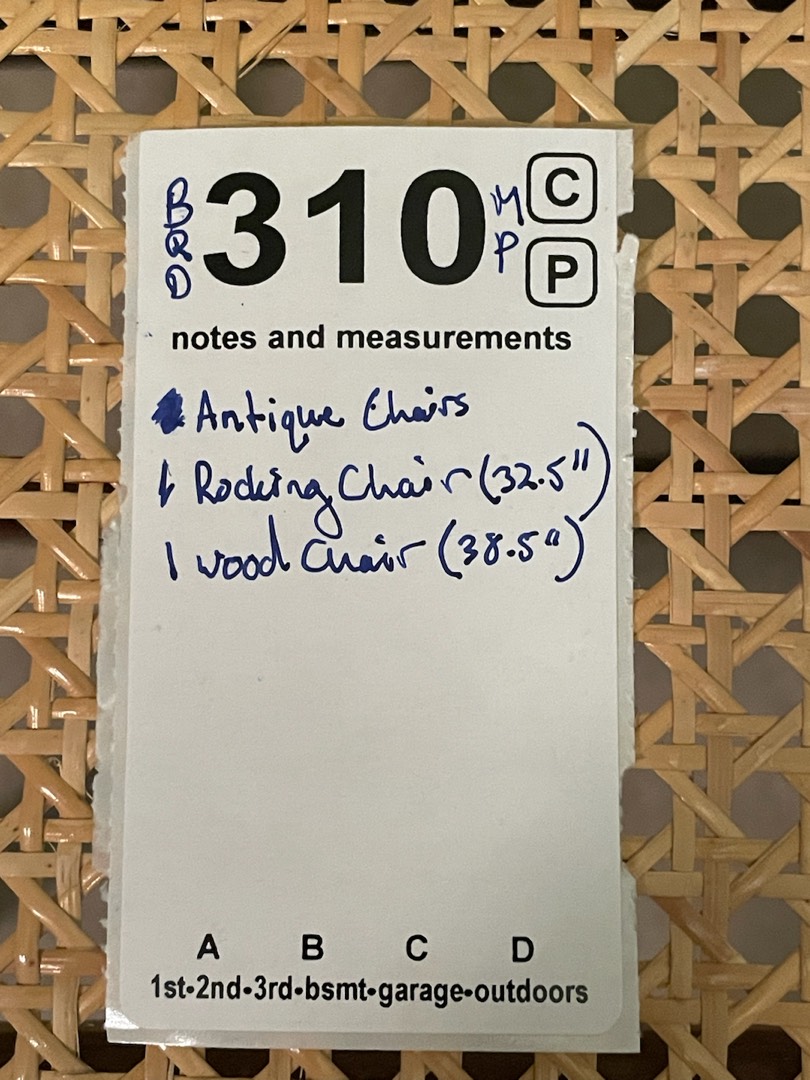 BRD 310 MP C P
notes and measurements
Antique Chairs
1 Rocking Chair (32.5")
1 wood Chair (38.5")
A B C D
1st•2nd•3rd•bsmt•garage•outdoors